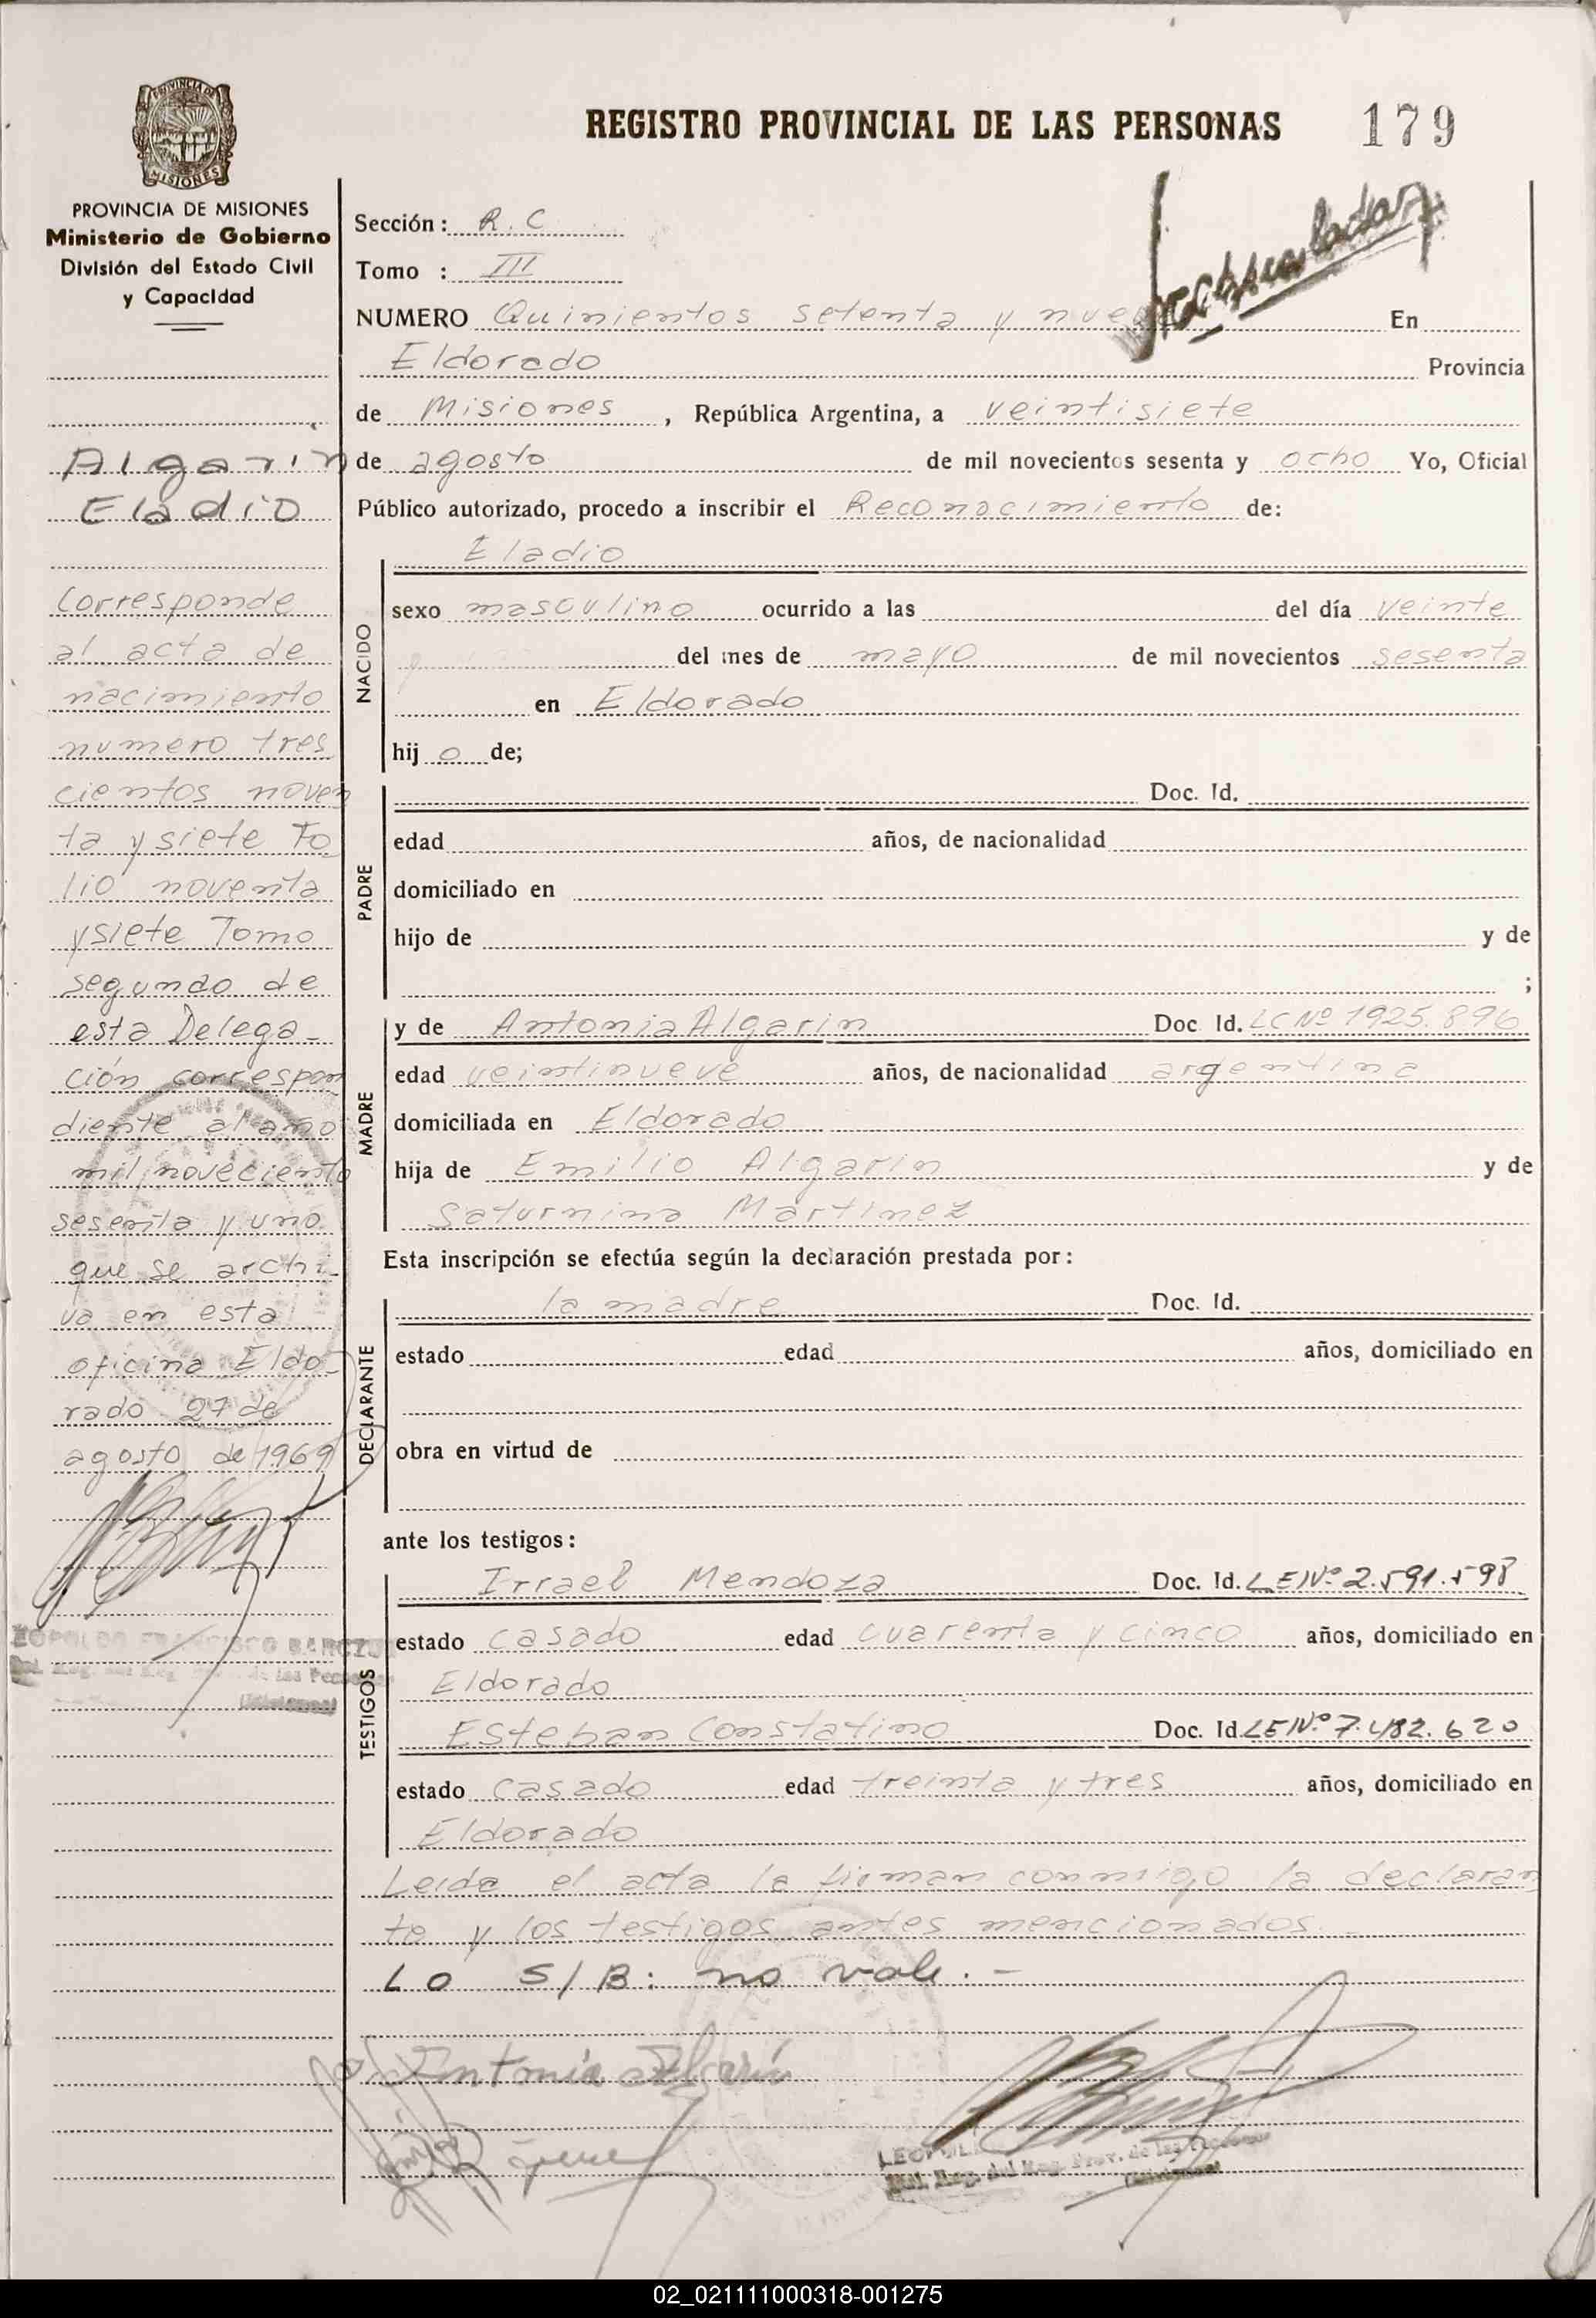 REGISTRO PROVINCIAL DE LAS PERSONAS 179
PROVINCIA DE MISIONES
PROVINCIA DE MISIONES
Ministerio de Gobierno
División del Estado Civil
y Capacidad
Algarin
Eladio
Corresponde
al acta de
nacimiento
numero tres
cientos noven
ta y siete Fo
lio noventa
y siete Tomo
segundo de
esta Delega-
ción correspon
diente al año
mil novecientos
sesenta y uno
que se archi-
va en esta
oficina Eldo-
rado 27 de
agosto de 1969
LEOPOLDO FRANCISCO
Sección: R.C
Tomo : III
NUMERO Quinientos setenta y nueve En
Eldorado Provincia
de Misiones, República Argentina, a veintisiete
de agosto de mil novecientos sesenta y ocho Yo, Oficial
Público autorizado, procedo a inscribir el Reconocimiento de:
NACIDO
Eladio
sexo masculino ocurrido a las del día veinte
del mes de mayo de mil novecientos sesenta
en Eldorado
hij o de;
PADRE
Doc. Id.
edad años, de nacionalidad
domiciliado en
hijo de y de
;
MADRE
y de Antonia Algarin Doc Id. LC Nº 1925.896
edad veintinueve años, de nacionalidad argentina
domiciliada en Eldorado
hija de Emilio Algarin y de
Saturnina Martinez
Esta inscripción se efectúa según la declaración prestada por:
DECLARANTE
la madre Doc. Id.
estado edad años, domiciliado en
obra en virtud de
ante los testigos:
TESTIGOS
Irrael Mendoza Doc. Id. LE Nº 2.591.598
estado casado edad cuarenta y cinco años, domiciliado en
Eldorado
Esteban Constatino Doc. Id. LE Nº 7.482.620
estado casado edad treinta y tres años, domiciliado en
Eldorado
Leida el acta la firman conmigo la declaran
te y los testigos antes mencionados
Lo S/B: no vale.-
Antonia Algarin
02_021111000318-001275